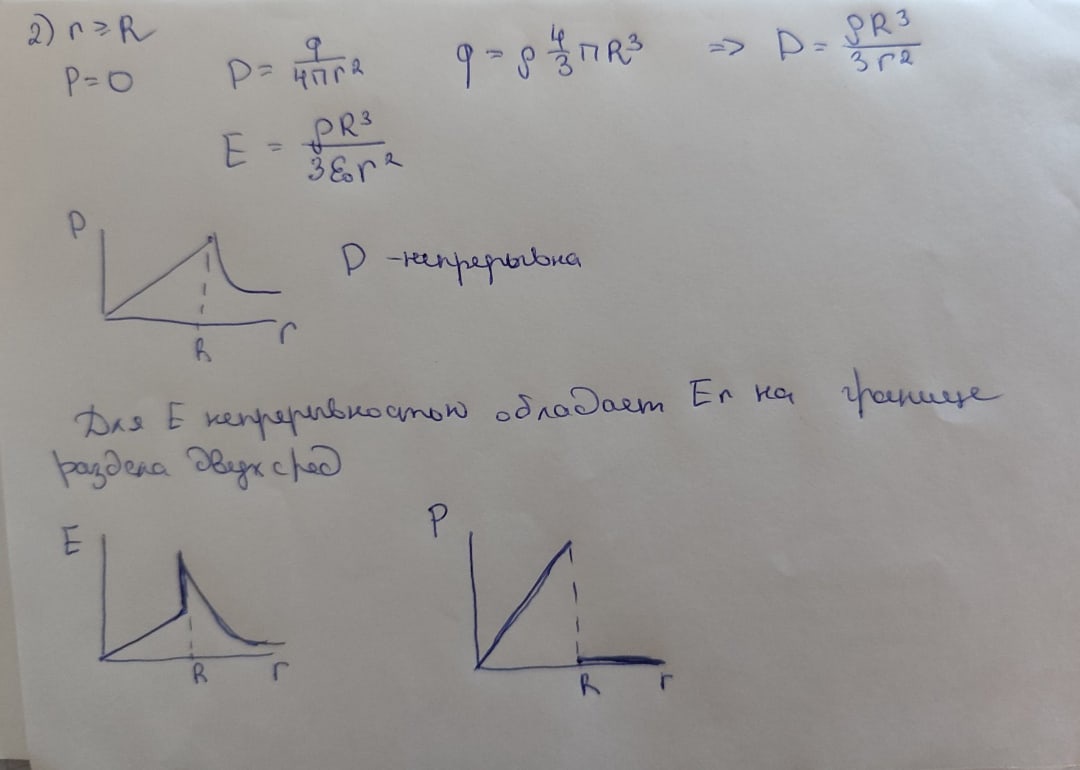 2) r ≥ R
P = 0 D = q/4πr² q = ρ 4/3 πR³ => D = ρR³/3r²
E = ρR³/3ε₀r²
D
D - непрерывна
R r
Для E непрерывностью обладает Eτ на границе
раздела двух сред
E P
R r R r